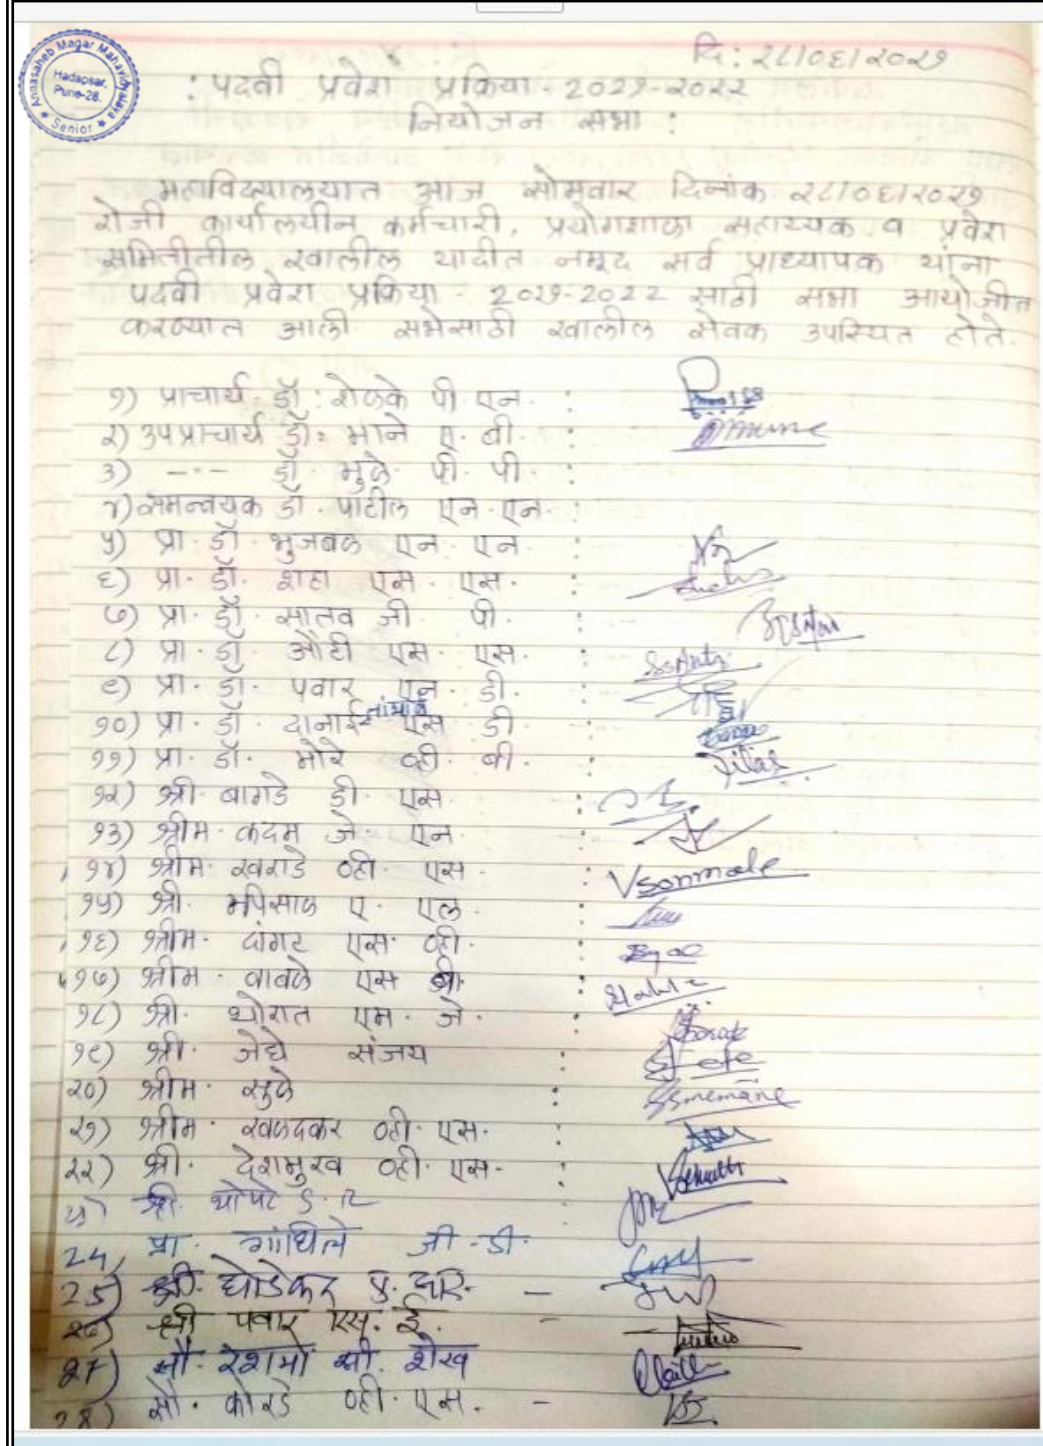 Annasaheb Magar Mahavidyalaya
Hadapsar,
Pune-28.
★ Senior ★
दि: २८/०६/२०२१
: पदवी प्रवेश प्रक्रिया - 2021-2022
नियोजन सभा :
महाविद्यालयात आज सोमवार दिनांक २८/०६/२०२१
रोजी कार्यालयीन कर्मचारी, प्रयोगशाळा सहाय्यक व प्रवेश
समितीतील खालील यादीत नमूद सर्व प्राध्यापक यांना
पदवी प्रवेश प्रक्रिया - 2021-2022 साठी सभा आयोजीत
करण्यात आली सभेसाठी खालील सेवक उपस्थित होते.
१) प्राचार्य - डॉ. शेळके पी. एन. :
२) उपप्राचार्य डॉ. माने ए. बी. :
३) -"- डॉ. मुळे पी. पी. :
४) समन्वयक डॉ. पाटील एन. एन. :
५) प्रा. डॉ. भुजबळ एन. एन :
६) प्रा. डॉ. शहा एस. एस. :
७) प्रा. डॉ. सातव जी. पी. :
८) प्रा. डॉ. औटी एस. एस. :
९) प्रा. डॉ. पवार एन. डी. :
१०) प्रा. डॉ. एस डी :
११) प्रा. डॉ. मोरे व्ही. बी. :
१२) श्री. बागडे डी. एस. :
१३) श्रीम. कदम जे. एन :
१४) श्रीम. खराडे व्ही. एस. : Vsonmale
१५) श्री. ए. एल. :
१६) श्रीम. दांगट एस. व्ही. :
१७) श्रीम. वाबळे एस बी. :
१८) श्री. थोरात एम. जे. :
१९) श्री. जेधे संजय :
२०) श्रीम. सुळे :
२१) श्रीम. खळदकर व्ही. एस. :
२२) श्री. देशमुख व्ही. एस. :
श्री. थोपटे :
24, प्रा. गांधिले जी. डी.
25) श्री. घोडेकर -
श्री पवार एस. ई. -
27) सौ. रेशमा शेख
28) सौ. कोरडे व्ही. एस. -